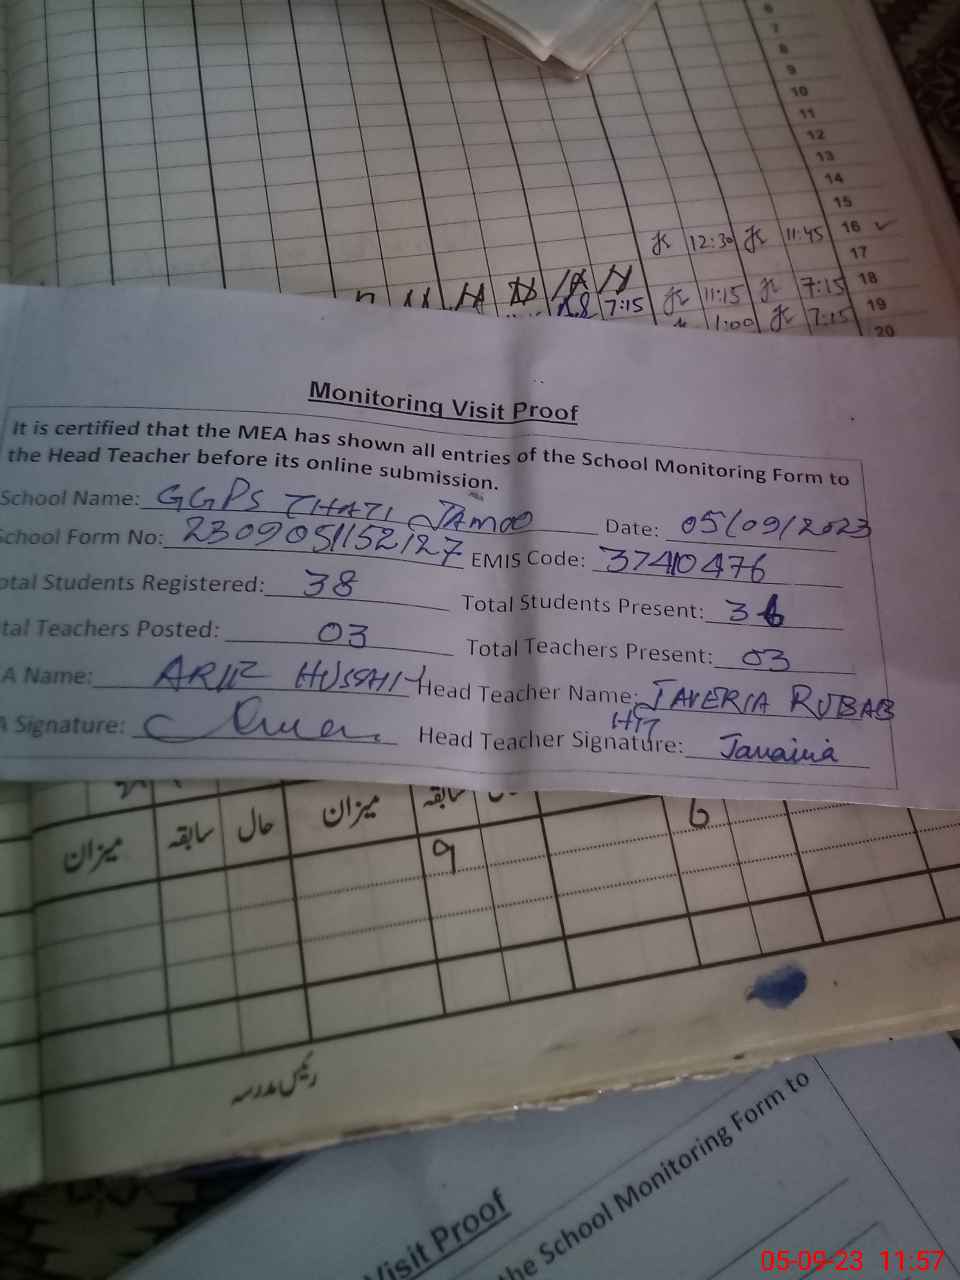 6
7
8
9
10
11
12
13
14
15
12:30 11:45 16
17
7:15 11:15 7:15 18
1:00 7:15 19
20
Monitoring Visit Proof
It is certified that the MEA has shown all entries of the School Monitoring Form to
the Head Teacher before its online submission.
School Name: GGPS THATI JAMOO Date: 05/09/2023
School Form No: 2309051152127 EMIS Code: 37410476
otal Students Registered: 38 Total Students Present: 36
tal Teachers Posted: 03 Total Teachers Present: 03
A Name: HUSSAIN Head Teacher Name: JAVERIA RUBAB
A Signature: Head Teacher Signature: Javairia
میزان سابقہ حال میزان سابقہ 6
9
رئیس مدرسہ
Visit Proof
the School Monitoring Form to
05-09-23 11:57